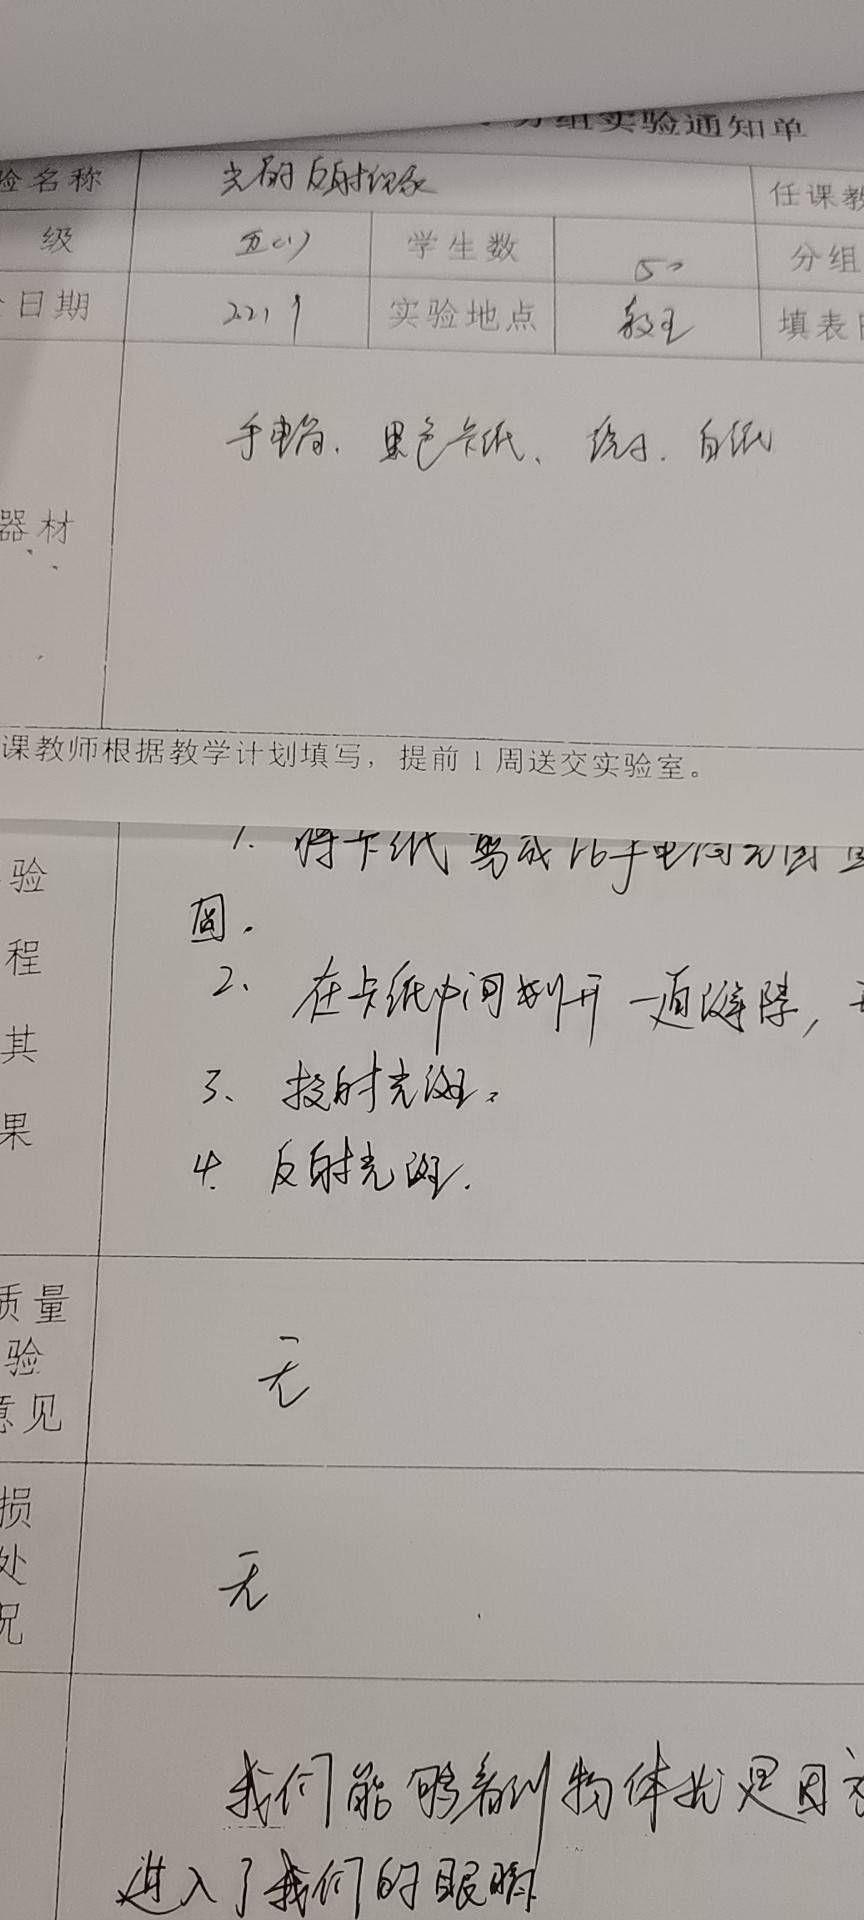 分组实验通知单
验名称 光的反射现象 任课教
级 五(1) 学生数 50 分组
日期 实验地点 教室 填表
手电筒、黑色卡纸、镜子、白纸
器材
课教师根据教学计划填写，提前1周送交实验室。
1. 将卡纸剪成比手电筒
验
圆。
程
2、在卡纸中间划开一道缝隙，
其
3、投射光斑。
果
4. 反射光斑.
质量
验
无
意见
损
处
无
况
我们能够看到物体 是因
进入了我们的眼睛